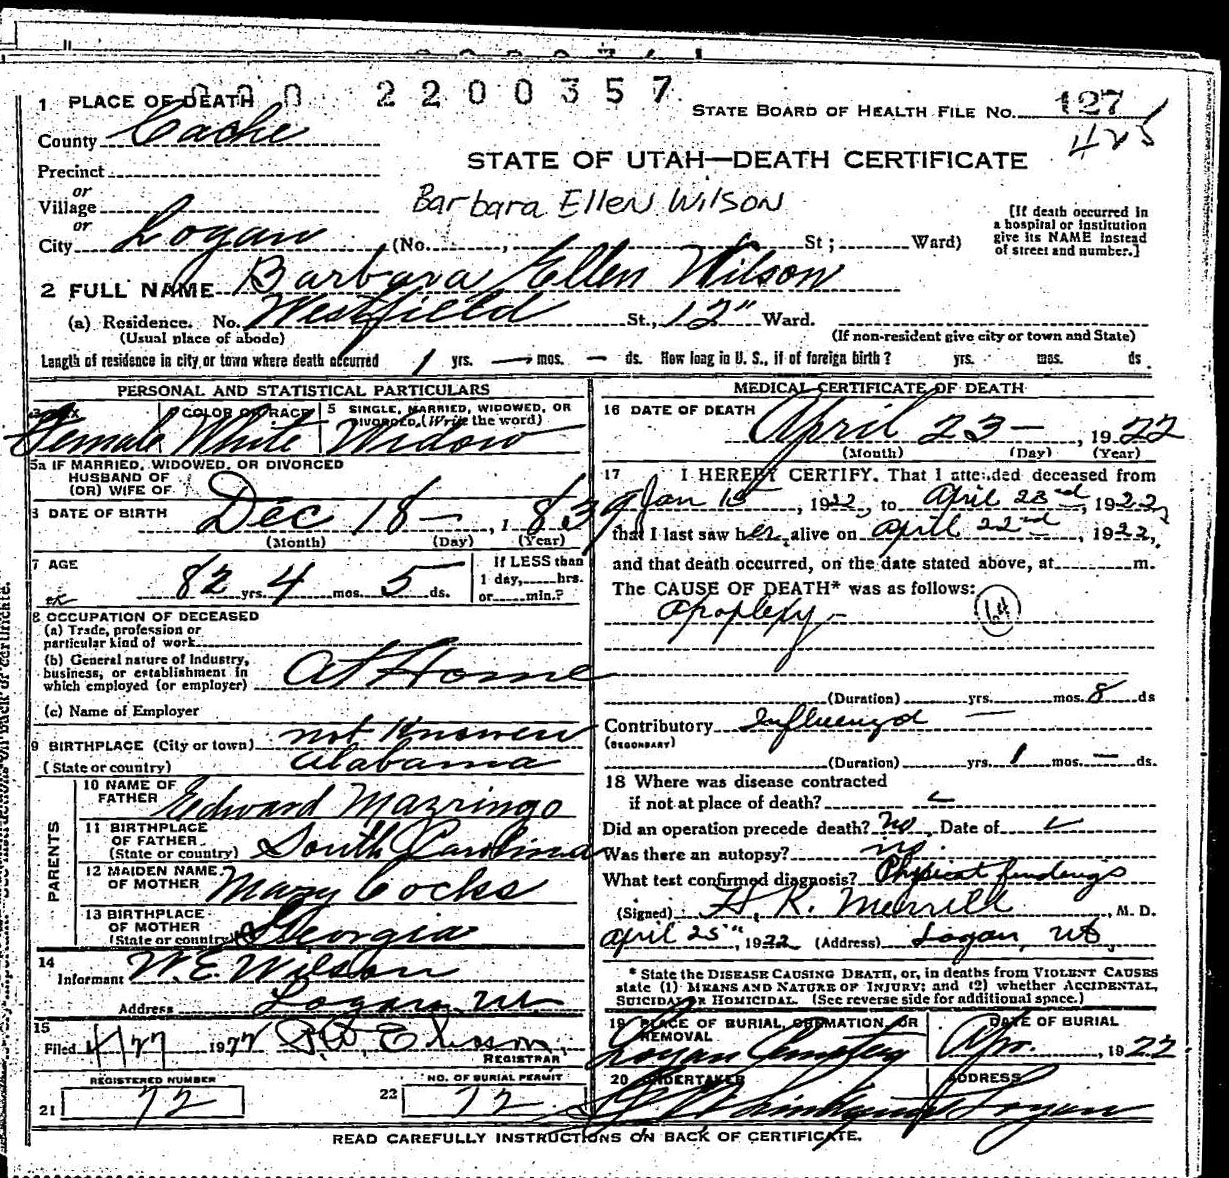 000 2200357
1 PLACE OF DEATH
STATE BOARD OF HEALTH FILE No. 127
425
County Cache
STATE OF UTAH—DEATH CERTIFICATE
Precinct
or
Village
Barbara Ellen Wilson
or
City Logan (No. , St; Ward)
[If death occurred in
a hospital or institution
give its NAME instead
of street and number.]
2 FULL NAME Barbara Ellen Wilson
(a) Residence. No. Westfield St., 12" Ward.
(Usual place of abode) (If non-resident give city or town and State)
Length of residence in city or town where death occurred 1 yrs. — mos. — ds. How long in U. S., if of foreign birth? yrs. mos. ds
PERSONAL AND STATISTICAL PARTICULARS
COLOR OR RACE 5 SINGLE, MARRIED, WIDOWED, OR
DIVORCED. (Write the word)
Female White Widow
5a IF MARRIED, WIDOWED, OR DIVORCED
HUSBAND OF
(OR) WIFE OF
6 DATE OF BIRTH Dec 18 — , 1839
(Month) (Day) (Year)
7 AGE
82 yrs. 4 mos. 5 ds.
If LESS than
1 day, hrs.
or min.?
8 OCCUPATION OF DECEASED
(a) Trade, profession or
particular kind of work
(b) General nature of Industry,
business, or establishment in
which employed (or employer) At Home
(c) Name of Employer
9 BIRTHPLACE (City or town) not Known
(State or country) Alabama
PARENTS
10 NAME OF
FATHER Edward Mazringo
11 BIRTHPLACE
OF FATHER
(State or country) South Carolina
12 MAIDEN NAME
OF MOTHER Mary Cocks
13 BIRTHPLACE
OF MOTHER
(State or country) Georgia
14
Informant W. E. Wilson
Address Logan, Ut
15
Filed 4/27 1922
REGISTRAR
REGISTERED NUMBER
21 72
NO. OF BURIAL PERMIT
22 72
MEDICAL CERTIFICATE OF DEATH
16 DATE OF DEATH
April 23 — , 1922
(Month) (Day) (Year)
17 I HEREBY CERTIFY. That I attended deceased from
Jan 15 , 1922, to April 23rd, 1922,
that I last saw her alive on April 22nd, 1922,
and that death occurred, on the date stated above, at m.
The CAUSE OF DEATH* was as follows:
Apoplexy —
(Duration) yrs. mos. 8 ds
Contributory Influenza —
(SECONDARY)
(Duration) yrs. 1 mos. — ds.
18 Where was disease contracted
if not at place of death?
Did an operation precede death? no. Date of
Was there an autopsy? no.
What test confirmed diagnosis? Physical findings
(Signed) H. K. Merrill , M. D.
April 25th, 1922 (Address) Logan, Ut.
* State the DISEASE CAUSING DEATH, or, in deaths from VIOLENT CAUSES
state (1) MEANS AND NATURE OF INJURY; and (2) whether ACCIDENTAL,
SUICIDAL OR HOMICIDAL. (See reverse side for additional space.)
19 PLACE OF BURIAL, CREMATION, OR
REMOVAL
Logan Cemetery
DATE OF BURIAL
Apr. , 1922
20 UNDERTAKER
ADDRESS
Logan
READ CAREFULLY INSTRUCTIONS ON BACK OF CERTIFICATE.